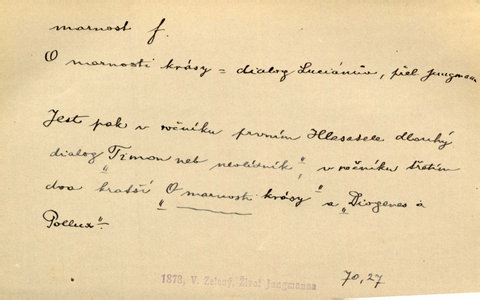 marnost f.
O marnosti krásy = dialog Luciánův, přel. Jungmann
Jest pak v ročníku prvním Hlasatele dlouhý
dialog „Timon neb nelidník“, v ročníku třetím
dva kratší „O marnosti krásy“ a „Diogenes a
Pollux“.
1873, V. Zelený, Život Jungmanna
70,27